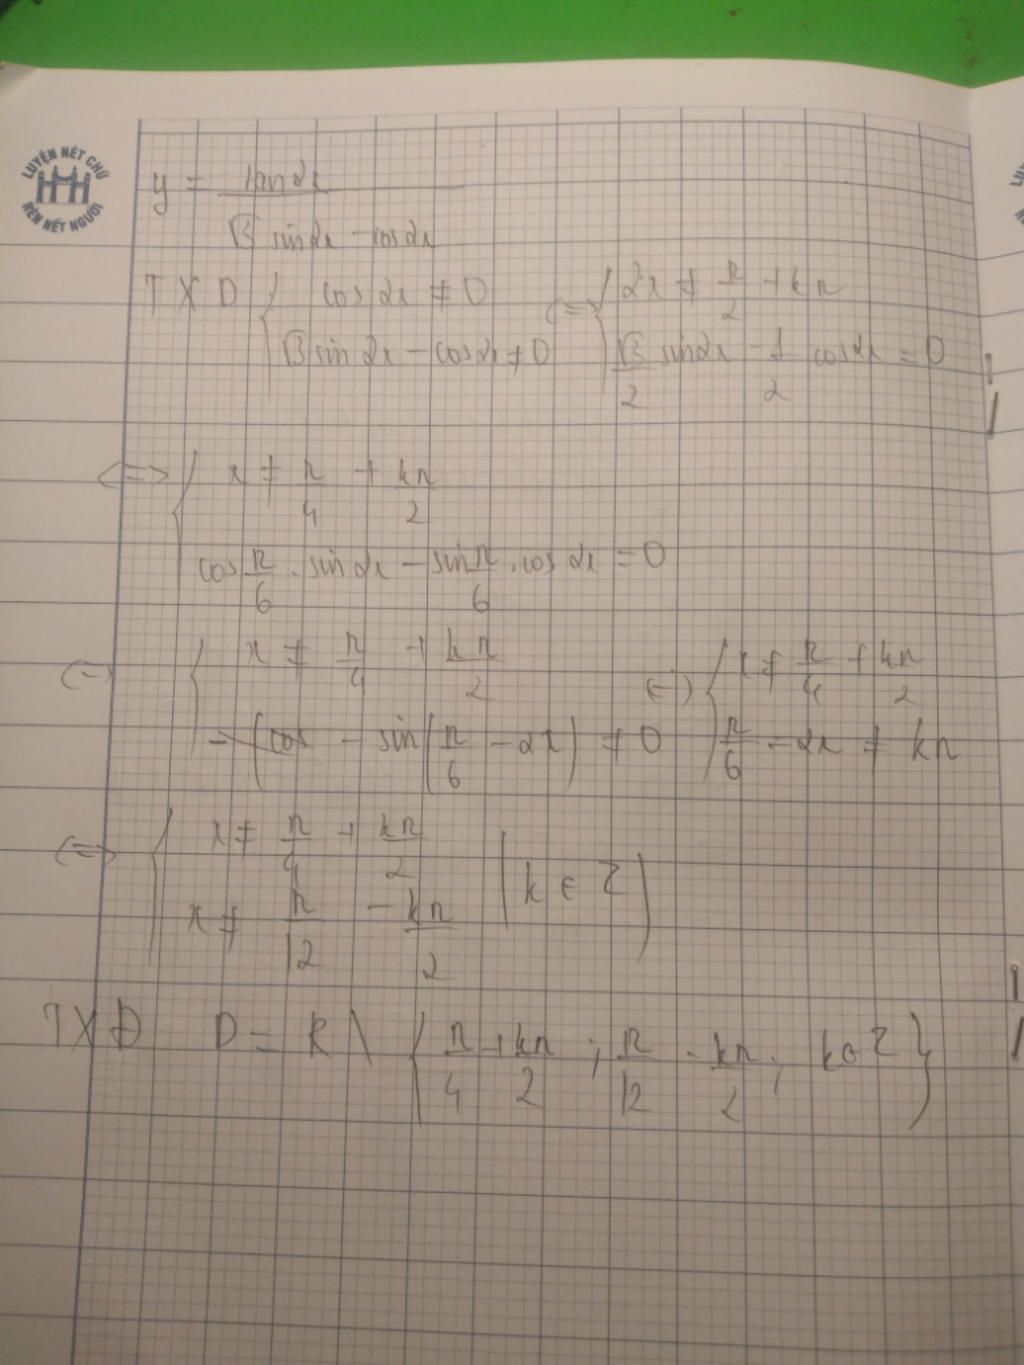 LUYỆN NÉT CHỮ
RÈN NẾT NGƯỜI
y = tan2x / √3 sin2x - cos2x
TXD { cos2x ≠ 0 <=> { 2x ≠ π/2 + kπ
√3 sin2x - cos2x ≠ 0 √3/2 sin2x - 1/2 cos2x = 0
<=> { x ≠ π/4 + kπ/2
cos π/6 . sin2x - sin π/6 . cos2x = 0
<=> { x ≠ π/4 + kπ/2 <=> { x ≠ π/4 + kπ/2
- sin(π/6 - 2x) ≠ 0 π/6 - 2x ≠ kπ
<=> { x ≠ π/4 + kπ/2
x ≠ π/12 - kπ/2 (k ∈ Z)
TXĐ D = R \ { π/4 + kπ/2 ; π/12 - kπ/2 ; k∈Z }